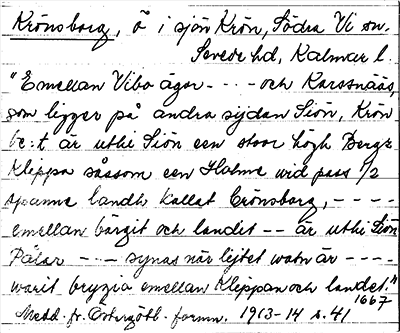 Krönsborg, ö i sjön Krön, Södra Vi sn.
Sevede hd, Kalmar l.
"Emellan Vibo ägor - - - och Karssnääs,
som ligger på andra sijdan Siön, Krön
be:t är uthi Siön een stoor högh Bergz
Klippa såssom een Holme wid pass 1/2
spanna landh kallat Crönsborg, - - - -
emellan bärgit och landet - - är uthi Siön
Pålar - - - synas när lijtet watn är - - - -
warit bryggia emellan Klippan och landet."
1667
Medd. fr. Östergötl. fornm. 1913-14 s. 41